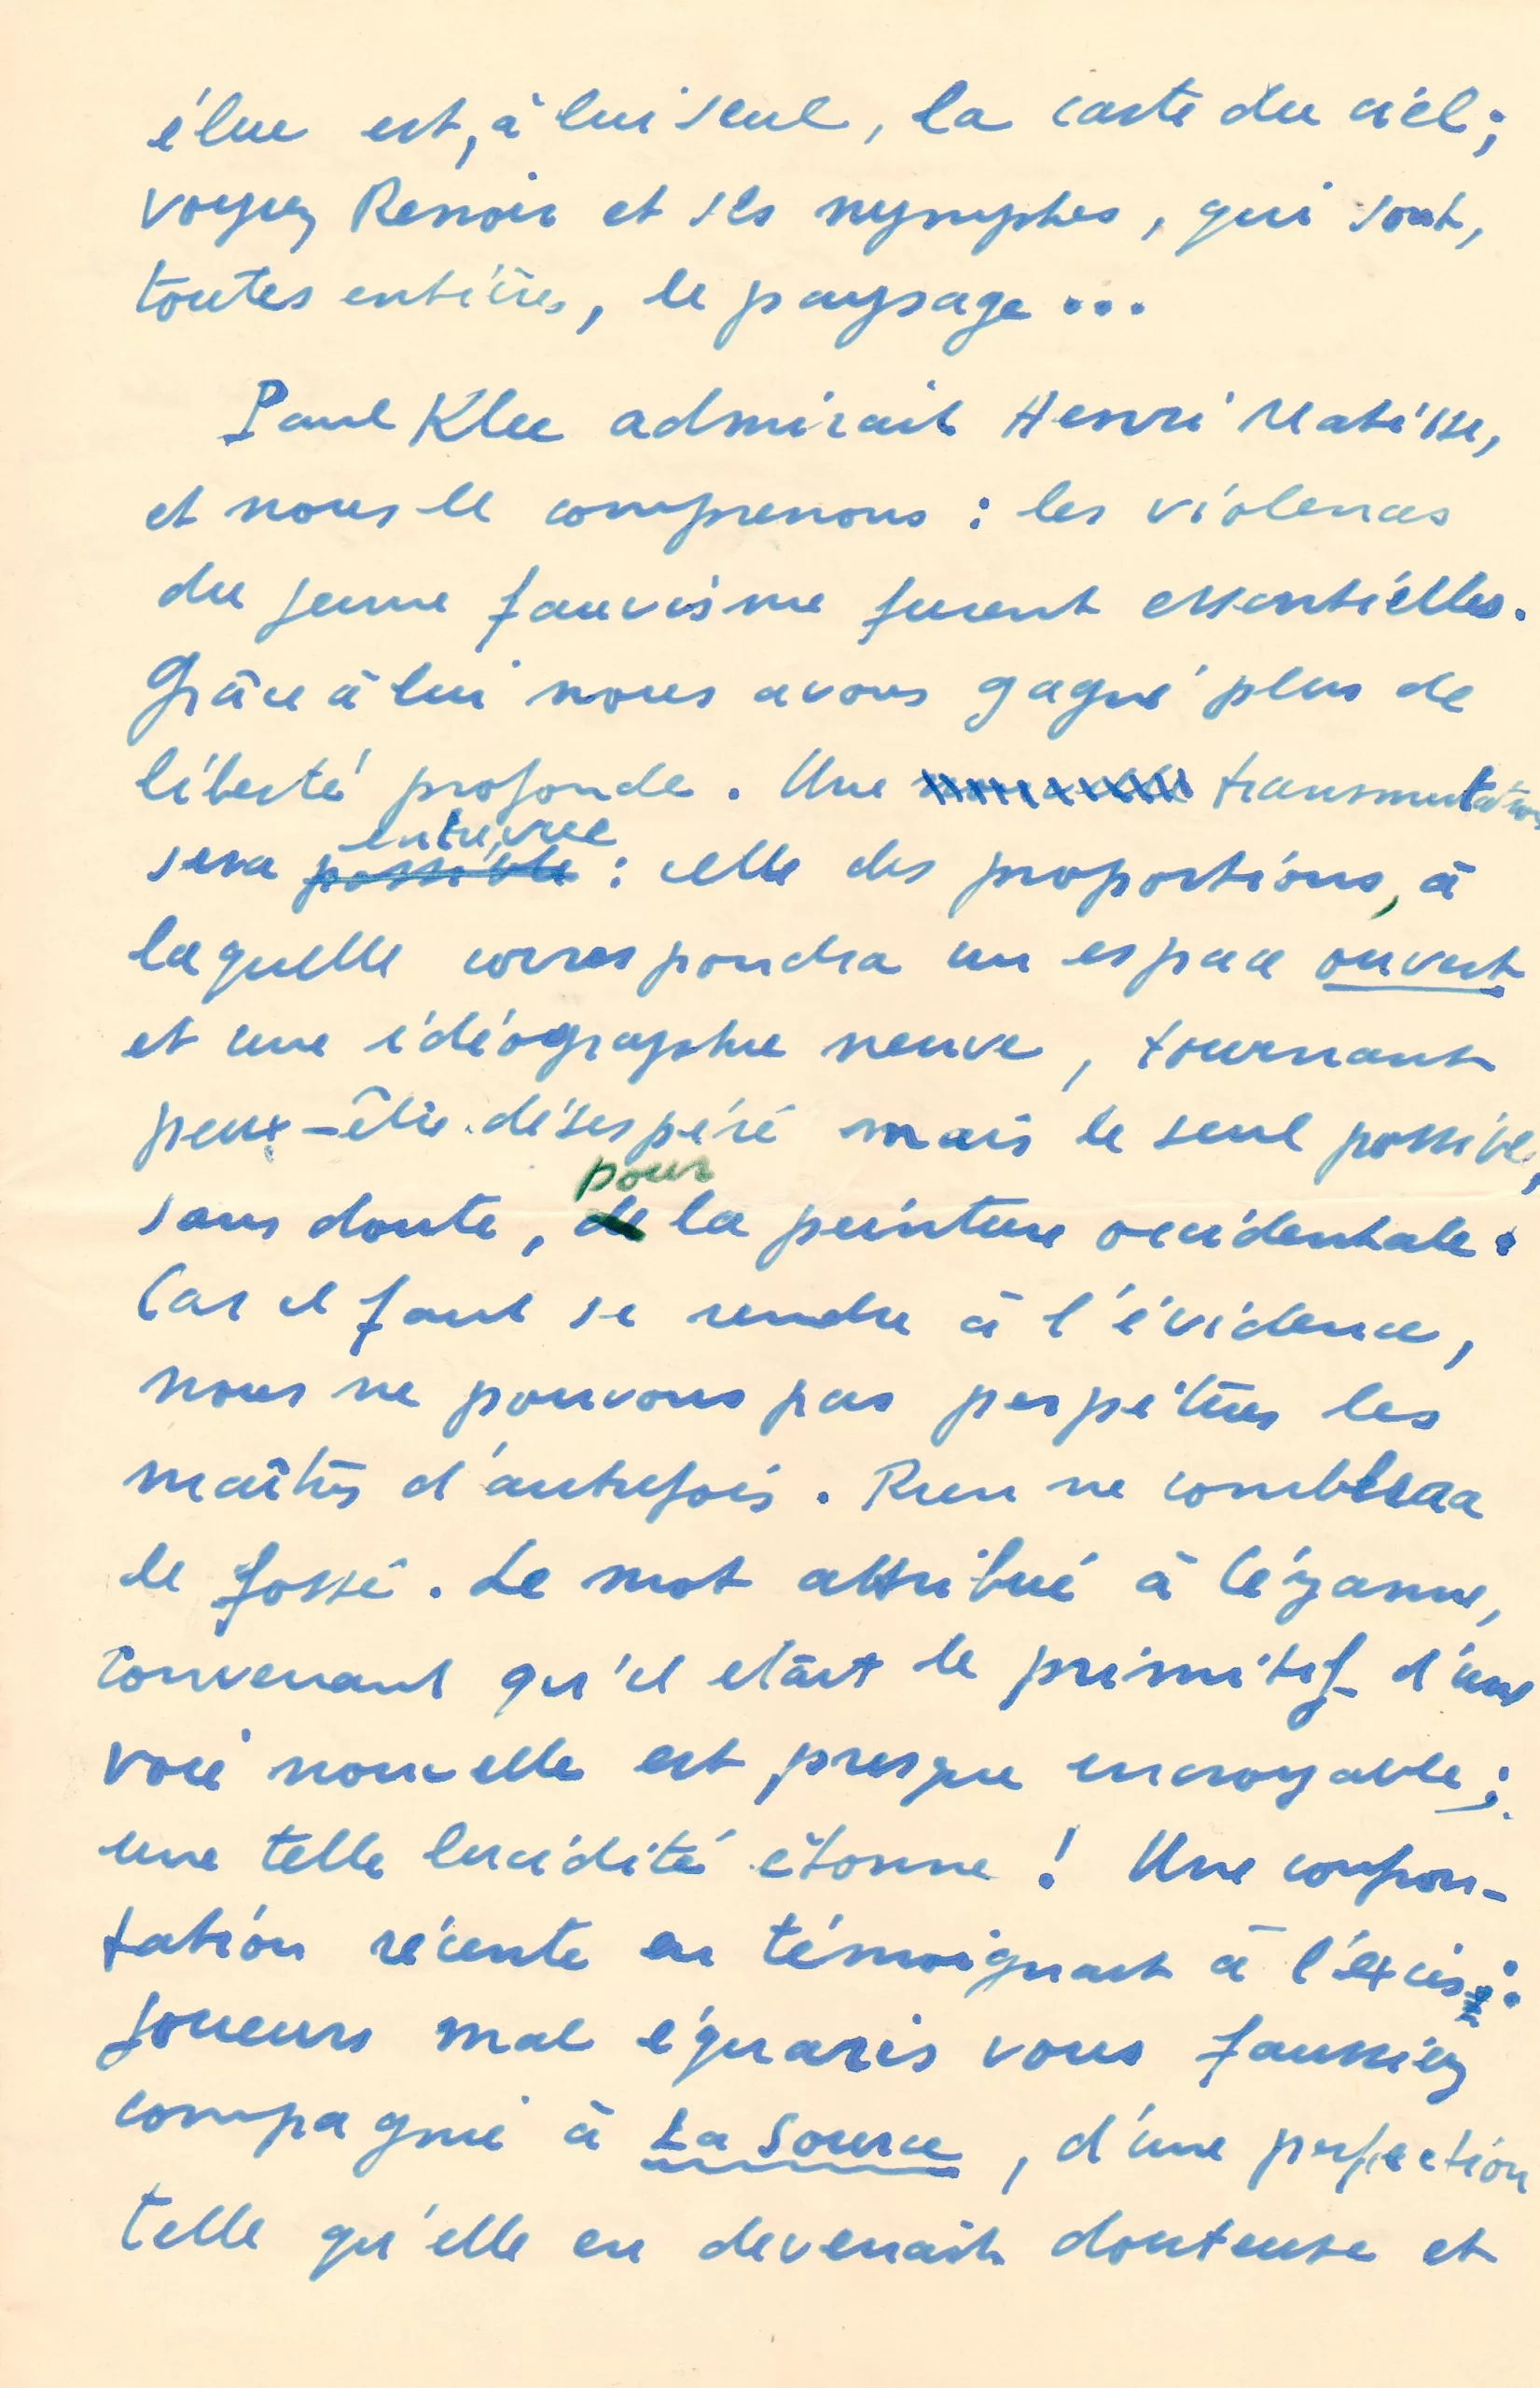 élue est, à lui seul, la carte du ciel;
voyez Renoir et ses nymphes, qui sont,
toutes entières, le paysage...
Paul Klee admirait Henri Matisse,
et nous le comprenons : les violences
du jeune fauvisme furent essentielles.
Grâce à lui nous avons gagné plus de
liberté profonde. Une transmutation
entrevue
sera possible : celle des proportions, à
laquelle correspondra un espace ouvert
et une idéographie neuve, tournant
peut-être désespéré mais le seul possible,
pour
sans doute, de la peinture occidentale.
Car il faut se rendre à l'évidence,
nous ne pouvons pas perpétuer les
maîtres d'autrefois. Rien ne comblera
le fossé. Le mot attribué à Cézanne,
convenant qu'il était le primitif d'une
voie nouvelle est presque incroyable;
une telle lucidité étonne ! Une confron-
tation récente en témoignait à l'excès :
joueurs mal équaris vous faussiez
compagnie à La Source, d'une perfection
telle qu'elle en devenait douteuse et